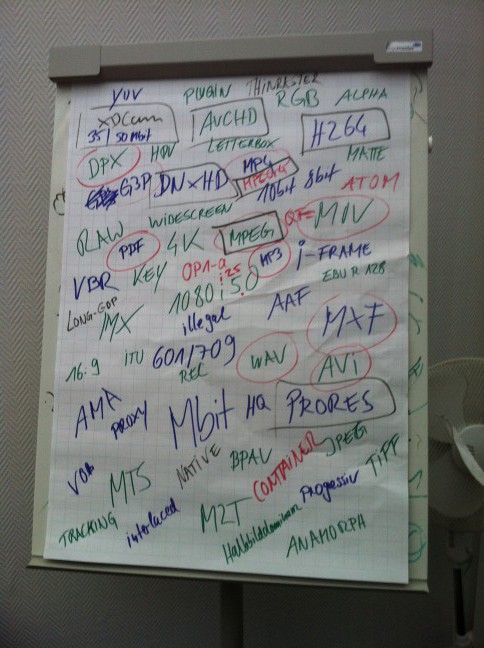 YUV PLUGIN THINRASTER
XDCam RGB ALPHA
35/50 Mbit AVCHD H264
LETTERBOX
DPX MATTE
G3P DNxHD MPG
10bit 8bit ATOM
WIDESCREEN
RAW PDF 4K MPEG MOV
VBR KEY OP1-a MP3 i-FRAME
i25 EBU R 128
LONG-GOP 1080i50 AAF
MX illegal MXF
16:9 ITU 601/709 WAV AVi
REC
AMA PROXY Mbit HQ PRORES
VOB MTS NATIVE BPAV CONTAINER JPEG TiFF
TRACKING interlaced M2T Progressiv
ANAMORPH